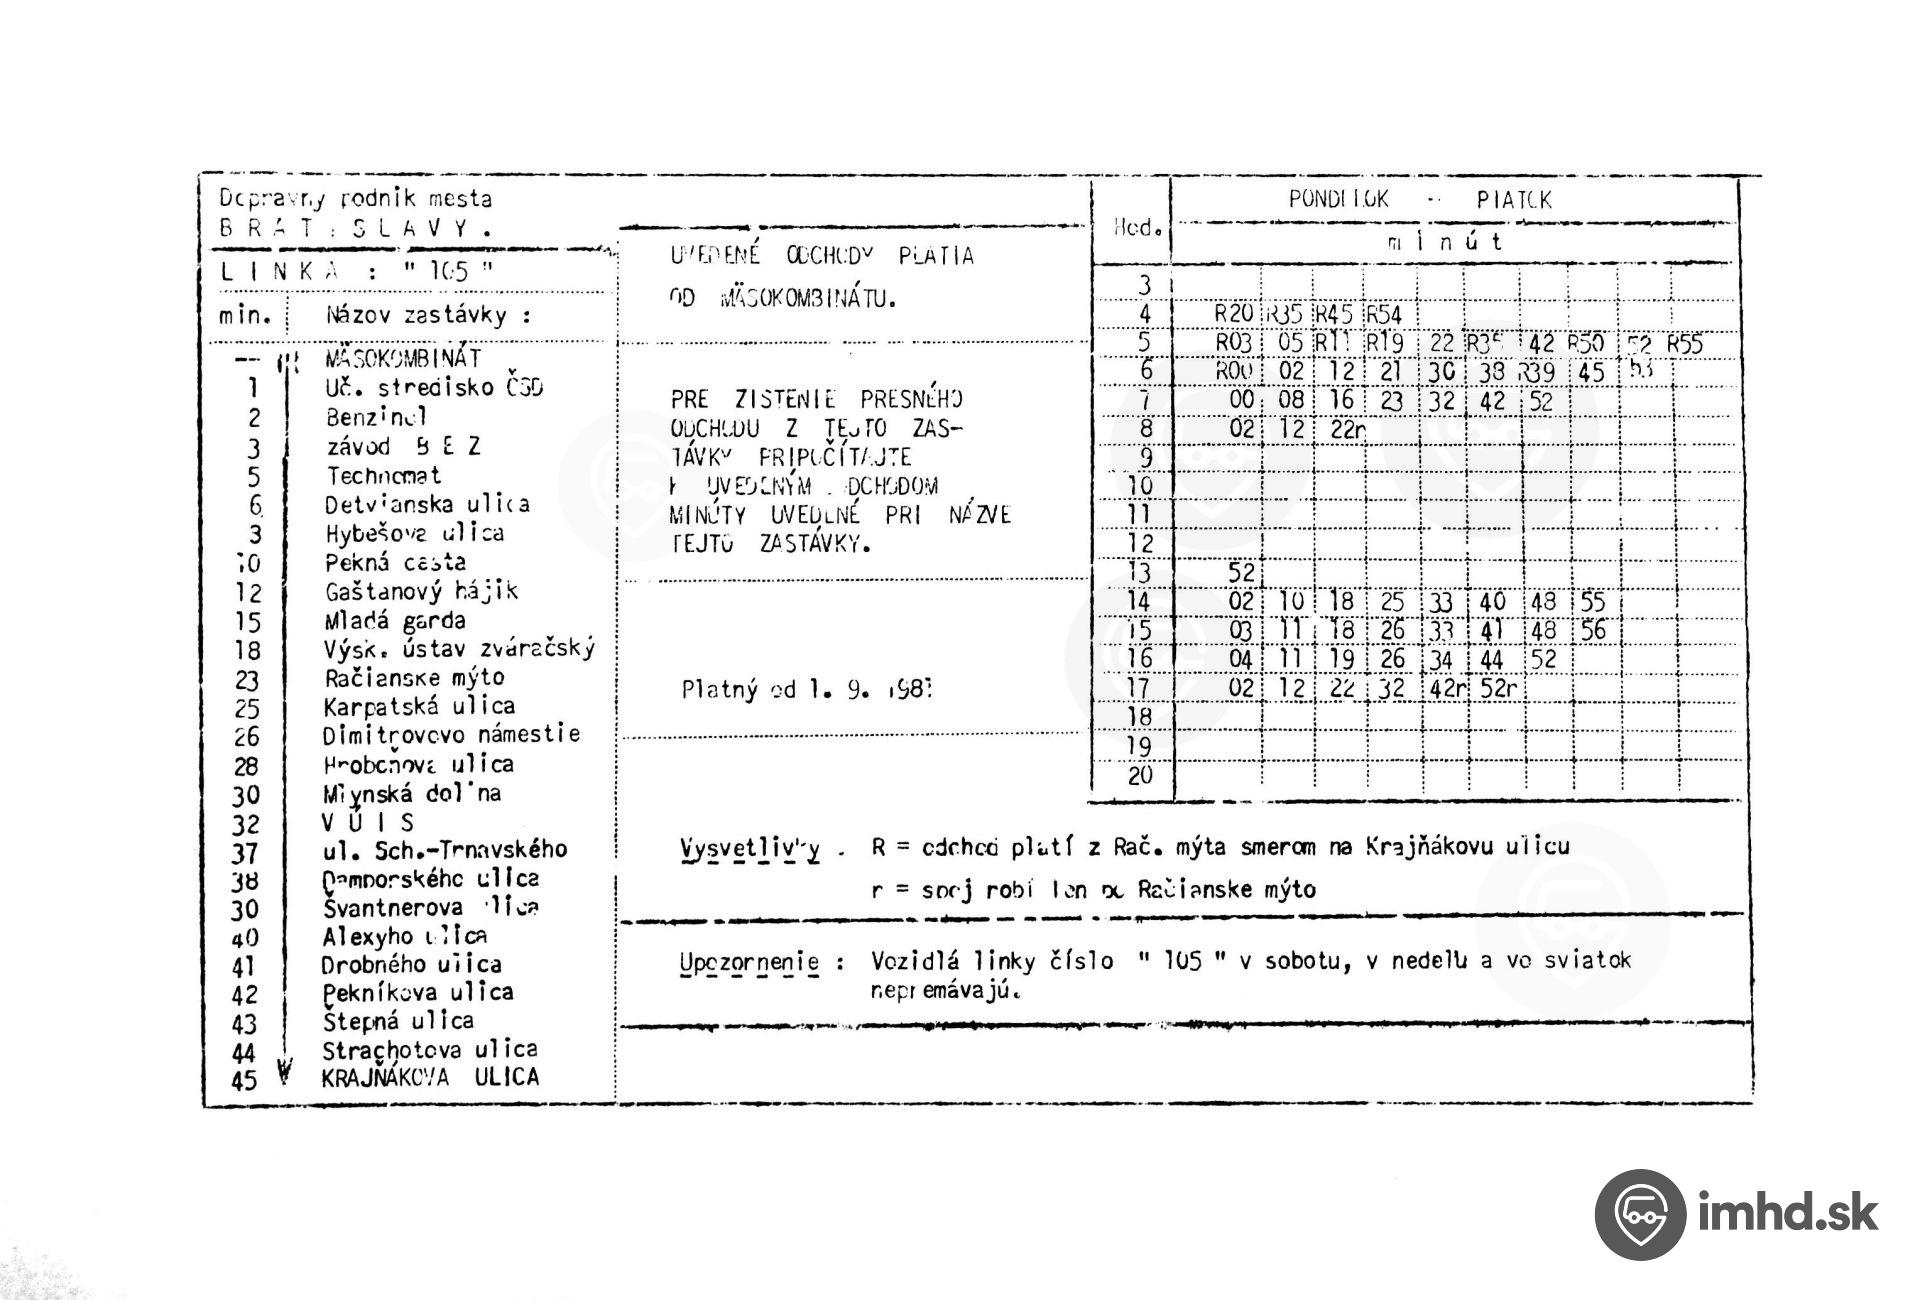 Dopravný podnik mesta
B R A T I S L A V Y .
L I N K A : " 105 "
min. Názov zastávky :
-- MÄSOKOMBINÁT
1 Uč. stredisko ČSD
2 Benzinol
3 závod B E Z
5 Technomat
6 Detvianska ulica
Hybešova ulica
10 Pekná cesta
12 Gaštanový hájik
15 Mladá garda
18 Výsk. ústav zváračský
23 Račianske mýto
25 Karpatská ulica
26 Dimitrovovo námestie
28 Hroboňova ulica
30 Mlynská dolina
32 V Ú I S
37 ul. Sch.-Trnavského
38 Damborského ulica
Švantnerova ulica
40 Alexyho ulica
41 Drobného ulica
42 Pekníkova ulica
43 Štepná ulica
44 Strachotova ulica
45 KRAJŇÁKOVA ULICA
UVEDENÉ ODCHODY PLATIA
OD MÄSOKOMBINÁTU.
PRE ZISTENIE PRESNÉHO
ODCHODU Z TEJTO ZAS-
TÁVKY PRIPOČÍTAJTE
K UVEDENÝM ODCHODOM
MINÚTY UVEDENÉ PRI NÁZVE
TEJTO ZASTÁVKY.
Platný od 1. 9.
Hod. PONDELOK - PIATOK
m i n ú t
3
4 R20 R35 R45 R54
5 R03 05 R11 R19 22 42 R50 52 R55
6 R00 02 12 21 30 38 R39 45 53
7 00 08 16 23 32 42 52
8 02 12 22r
9
10
11
12
13 52
14 02 10 18 25 33 40 48 55
15 03 11 18 26 33 41 48 56
16 04 11 19 26 34 44 52
17 02 12 22 32 42r 52r
18
19
20
Vysvetlivky : R = odchod platí z Rač. mýta smerom na Krajňákovu ulicu
r = spoj robí len po Račianske mýto
Upozornenie : Vozidlá linky číslo " 105 " v sobotu, v nedeľu a vo sviatok
nepremávajú.
imhd.sk